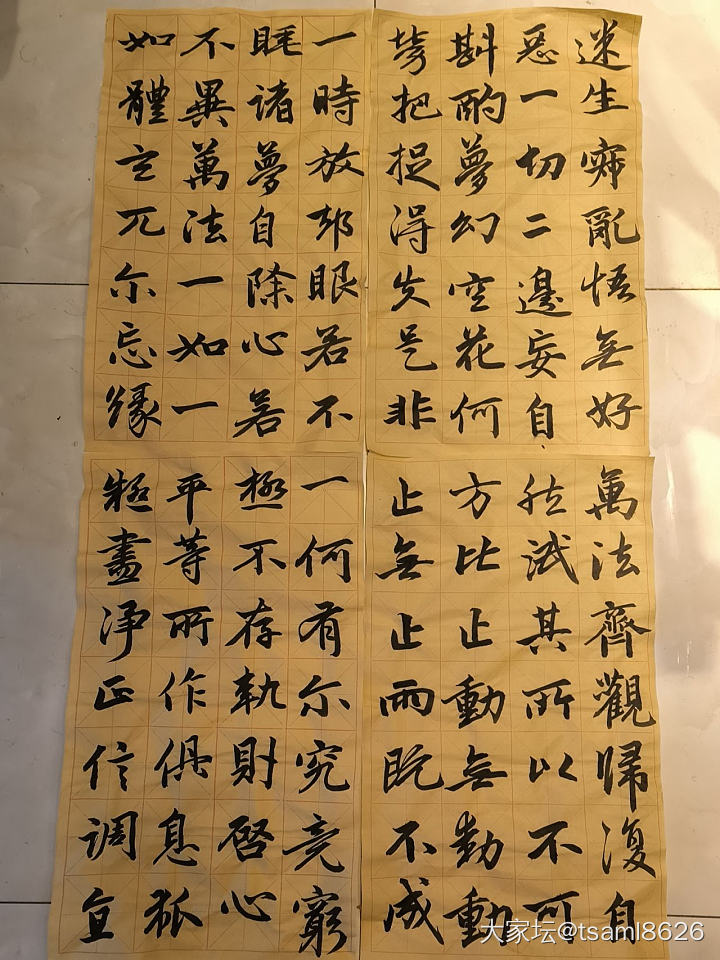 迷生寂亂悟無好
惡一切二邊妄自
斟酌夢幻空花何
勞把捉得失是非
一時放却眼若不
睡諸夢自除心若
不異萬法一如一
如體玄兀尔忘緣
萬法齊觀歸復自
然泯其所以不可
方比止動無動動
止無止兩既不成
一何有尔究竟窮
極不存軌則啓心
平等所作俱息狐
疑盡淨正信調直
大家坛@tsaml8626